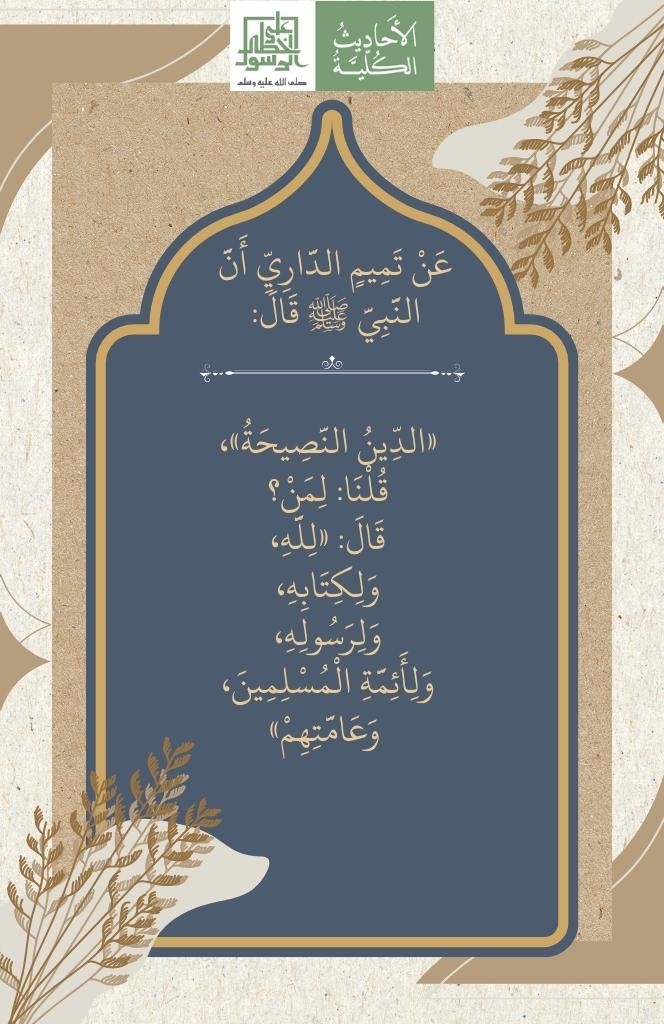 على
خطى
الرسول
صلى الله عليه وسلم
الأَحَادِيثُ
الكُلِّيَّةُ
عَنْ تَمِيمٍ الدَّارِيِّ أَنَّ
النَّبِيّ ﷺ قَالَ:
«الدِّينُ النَّصِيحَةُ»،
قُلْنَا: لِمَنْ؟
قَالَ: «لِلَّهِ،
وَلِكِتَابِهِ،
وَلِرَسُولِهِ،
وَلِأَئِمَّةِ الْمُسْلِمِينَ،
وَعَامَّتِهِمْ»